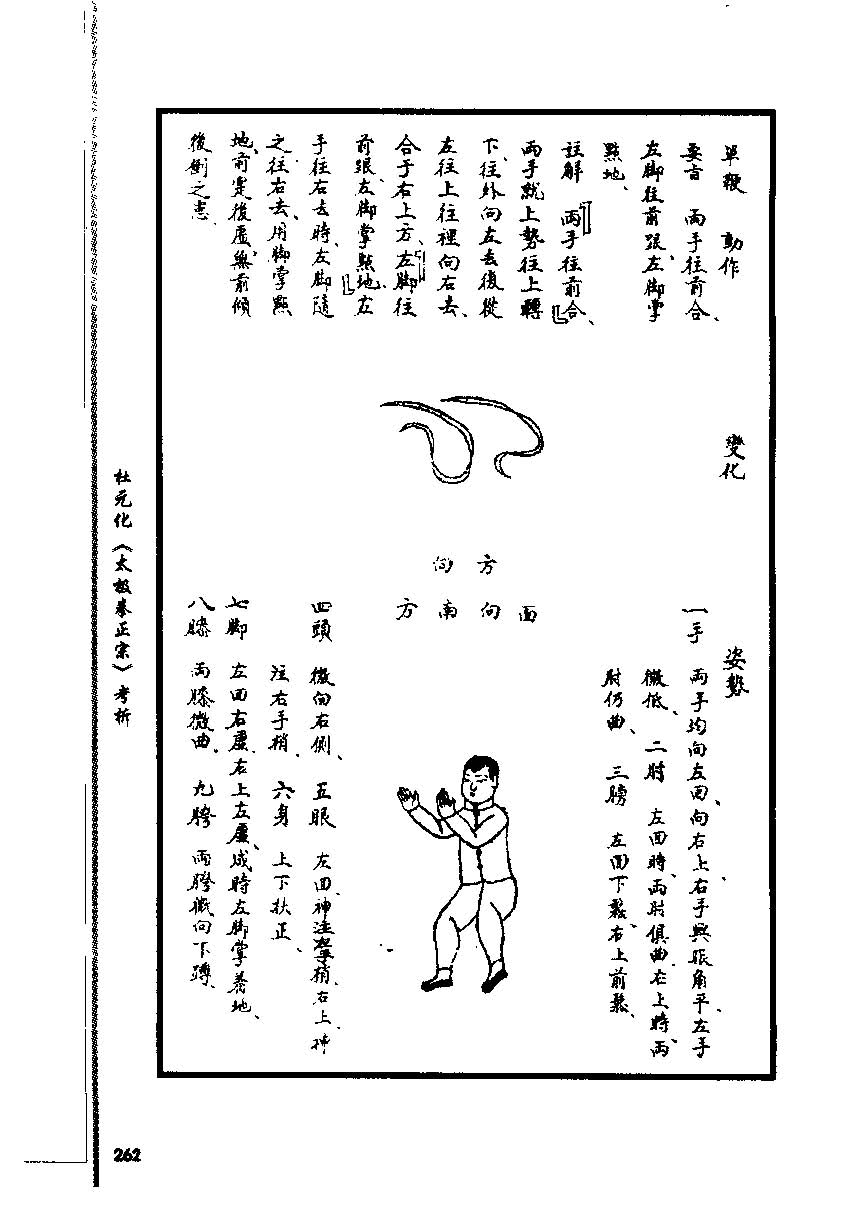 單鞭 動作
要言 兩手往前合、
左脚往前跟、左脚掌
點地、
註解 兩手往前合、
兩手就上勢往上轉
下、往外向左去復從
左往上往裡向右去、
合于右上方、左脚往
前跟、左脚掌點地、左
手往右去時、左脚隨
之往右去、用脚掌點
地、前實後虛、無前傾
後倒之患、
變化
方
向
面
向
南
方
姿勢
一手 兩手均向左回、向右上、右手與眼角平、左手
微低、 二肘 左回時、兩肘俱曲、右上時、兩
肘仍曲、 三膀 左回下鬆、右上前鬆、
四頭 微向右側、 五眼 左回、神注左手梢、右上、神
注右手梢、 六身 上下扶正、
七脚 左回右虛、右上左虛、成時左脚掌着地、
八膝 兩膝微曲、 九胯 兩胯微向下蹲、
杜元化《太极拳正宗》考析
262